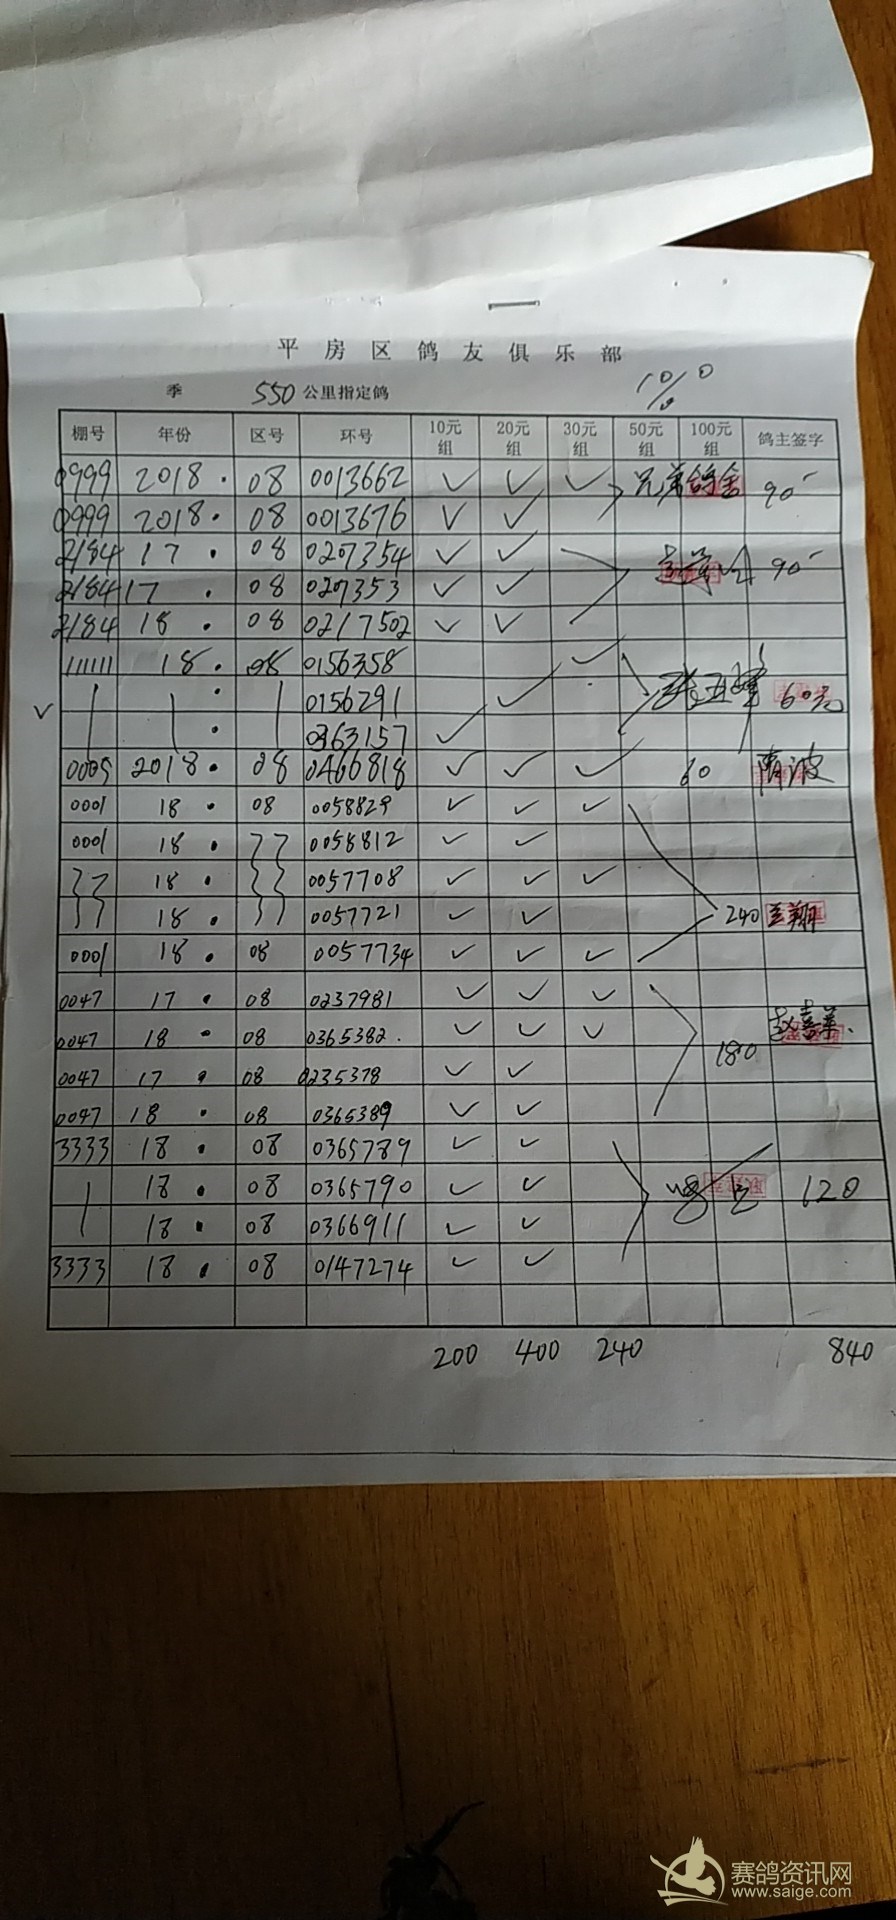 平房区鸽友俱乐部
季 550 公里指定鸽 10%
棚号 年份 区号 环号 10元组 20元组 30元组 50元组 100元组 鸽主签字
0999 2018. 08 0013662 ✓ ✓ ✓ 兄弟鸽舍 90
0999 2018. 08 0013676 ✓ ✓
2184 17 . 08 0207354 ✓ ✓ 90
2184 17 . 08 0207353 ✓ ✓
2184 18 . 08 0217502 ✓ ✓
111111 18. 08 0156358 ✓
0156291 ✓ 60元
✓ 0363157 ✓
0005 2018. 08 0466818 ✓ ✓ ✓ 60 隋波
0001 18 . 08 0058829 ✓ ✓ ✓
0001 18 . 0058812 ✓ ✓
18 . 0057708 ✓ ✓ ✓
18 . 0057721 ✓ ✓ 240 王翔
0001 18 . 08 0057734 ✓ ✓ ✓
0047 17 . 08 0237981 ✓ ✓ ✓
0047 18 . 08 0365382. ✓ ✓ ✓ 180
0047 17 . 08 0235378 ✓ ✓
0047 18 . 08 0365389 ✓ ✓
3333 18 . 08 0365789 ✓ ✓
18 . 08 0365790 ✓ ✓ 120
18 . 08 0366911 ✓ ✓
3333 18 . 08 0147274 ✓ ✓
200 400 240 840
赛鸽资讯网
www.saige.com